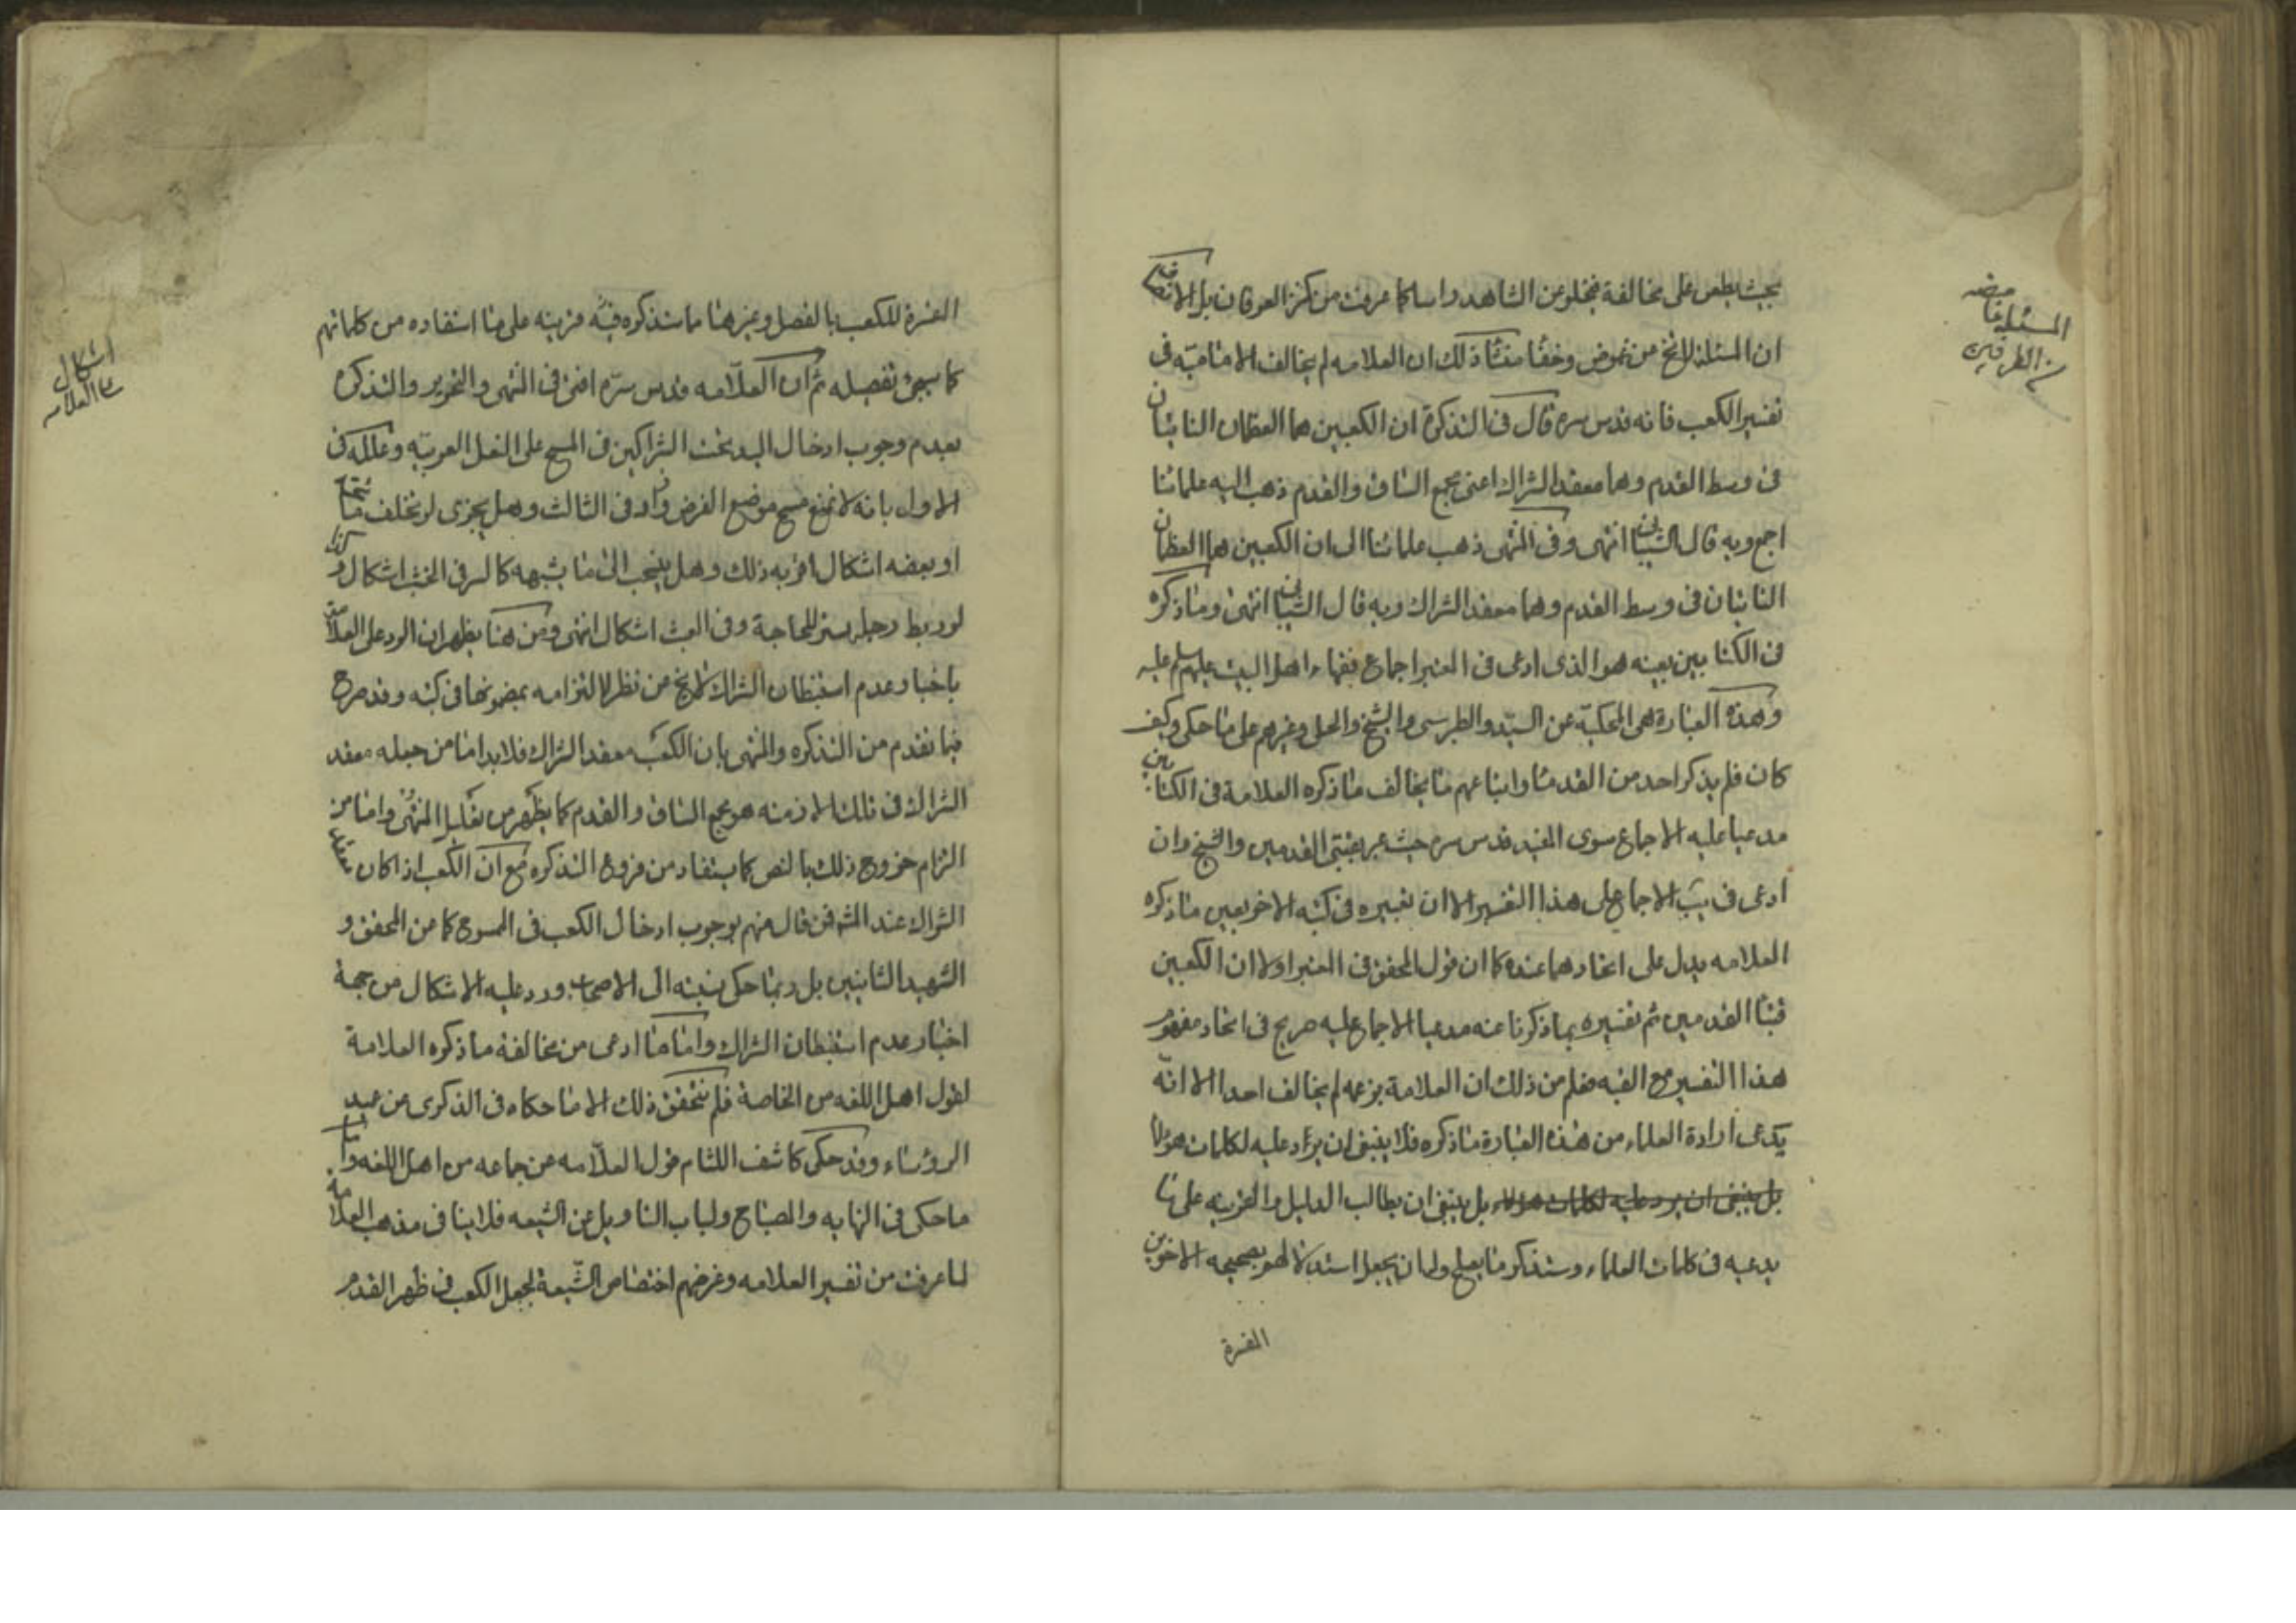 بحيث يطعن على مخالفة فيخلو عن الشاهد راسا كما عرفت من كنز العرفان بل الانصاف
ان المسئلة لا تخ من غموض وخفاء منشأ ذلك ان العلامه لم يخالف الاماميّة فى
تفسير الكعب فانه قدس سره قال فى التذكرة ان الكعبين هما العظمان الناتيان
فى وسط القدم وهما معقد الشراك اعنى مجمع الساق والقدم ذهب اليه علمائنا
اجمع وبه قال الشيبانى انتهى وفى المنتهى ذهب علمائنا الى ان الكعبين هما العظمان
الناتيان فى وسط القدم وهما معقد الشراك وبه قال الشيبانى انتهى وما ذكره
فى الكتابين بعينه هو الذى ادعى فى المعتبر اجماع فقهاء اهل البيت عليهم عليه
وهذه العبارة هى المحكيّة عن السيّد والطبرسى والشيخ والحلى وغيرهم على ما حكى وكيف
كان فلم يذكر احد من القدماء واتباعهم ما يخالف ما ذكره العلامة فى الكتابين
مدعيا عليه الاجماع سوى المفيد قدس سره حيث عبر بقبتى القدمين والشيخ وان
ادعى فى يب الاجماع على هذا التفسير الا ان تعبيره فى كتبه الاخر بعين ما ذكره
العلامه يدل على اتحادهما عنده كما ان قول المحقق فى المعتبر اولا ان الكعبين
قبتا القدمين ثم تفسيره بما ذكرنا عنه مدعيا الاجماع عليه صريح فى اتحاد مفهوم
هذا التفسير مع القبه فعلم من ذلك ان العلامة بزعمه لم يخالف احدا الا انّه
يدعى ارادة العلماء من هذه العبارة ما ذكره فلا ينبغى ان يراد عليه لكلمات هولا
بل ينبغى ان يرد عليه لكلمات هولاء بل ينبغى ان يطالب الدليل والقرينه على ما
يدعيه فى كلمات العلماء وستذكر ما يصلح ولما ن يجعل استدلالهم بصحيحه الاخوين
المفسرة
المسئلة غامضه
من الطرفين
المفسرة للكعب بالمفصل وغيرها ما ستذكره فيه قرينه على ما استفاده من كلماتهم
كما سيجئ تفصيله ثم ان العلّامه قدس سرّه افتى فى المنتهى والتحرير والتذكره
بعدم وجوب ادخال اليد تحت الشراكين فى المسح على النعل العربيّه وعلله فى
الاول بانه لا يمنع مسح موضع الفرض وزاد فى الثالث وهل يجزى لو تخلف ما تحته
او بعضه اشكال اقربه ذلك وهل ينسحب الى ما يشبهه كالسير فى الخشب اشكال وكذا
لو ربط رجله بسير للحاجة وفى العبث اشكال انتهى ومن هنا يظهر ان الرد على العلامه
باخبار عدم استبطان الشراك لا يخ من نظر لالتزامه بمضمونها فى كتبه وقد صرح
فيما تقدم من التذكره والمنتهى بان الكعب معقد الشراك فلا بد اما من جعله معقد
الشراك فى تلك الازمنه هو مجمع الساق والقدم كما يظهر من تعليل المنتهى واما من
التزام خروج ذلك بالنص كما يستفاد من فروع التذكره مع ان الكعب اذا كان معقد
الشراك عند المشهور فمن قال منهم بوجوب ادخال الكعب فى المسوح كما من المحقق و
الشهيد الثانيين بل ربما حكى نسبته الى الاصحاب ورد عليه الاشكال من جهة
اخبار عدم استبطان الشراك واما ما ادعى من مخالفة ما ذكره العلامة
لقول اهل اللغه من الخاصة فلم نتحقق ذلك الا ما حكاه فى الذكرى عن عميد
الرؤساء وقد حكى كاشف اللثام قول العلّامه عن جماعه من اهل اللغه واما
ما حكى فى النهايه والمصباح ولباب التاويل عن الشيعه فلا ينافى مذهب العلامه
لما عرفت من تفسير العلامه وغرضهم اختصاص الشّيعة لجعل الكعب فى ظهر القدم
اشكال
على العلامه